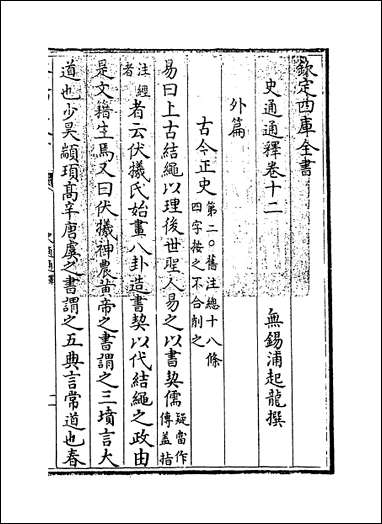 欽定四庫全書
史通通釋卷十二
無錫浦起龍撰
外篇
古今正史第二〇舊注總十八條
四字按之不合削之
易曰上古結繩以理後世聖人易之以書契儒疑當作
傳蓋指
注經
者者云伏犧氏始畫八卦造書契以代結繩之政由
是文籍生焉又曰伏犧神農黄帝之書謂之三墳言大
道也少昊顓頊高辛唐虞之書謂之五典言常道也春
史通通釋